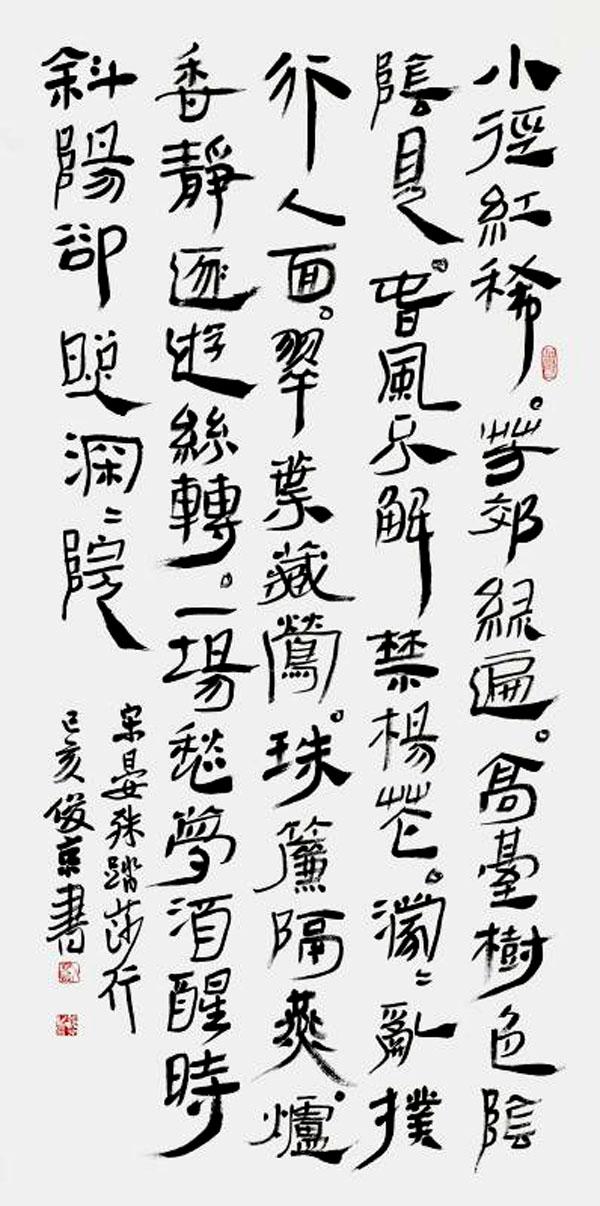 小徑紅稀。芳郊緑遍。高臺樹色陰
陰見。春風不解禁楊花。濛〻亂撲
行人面。翠葉藏鶯。珠簾隔燕。爐
香靜逐遊絲轉。一場愁夢酒醒時
斜陽卻照深〻院
宋晏殊踏莎行
己亥俊京書